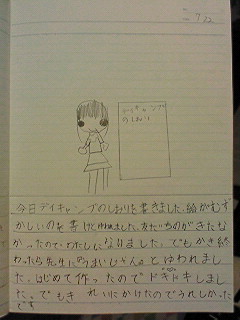 7/22
デイキャンプ
のしおり
今日デイキャンプのしおりを書きました。絵がむず
かしいのを書
なかったので、わたしになりました。でもかき終
わったら先生に「うまいじゃん。」とゆわれまし
た。はじめて作ったのでドキドキしまし
た。でもきれいにかけたのでうれしかった
です